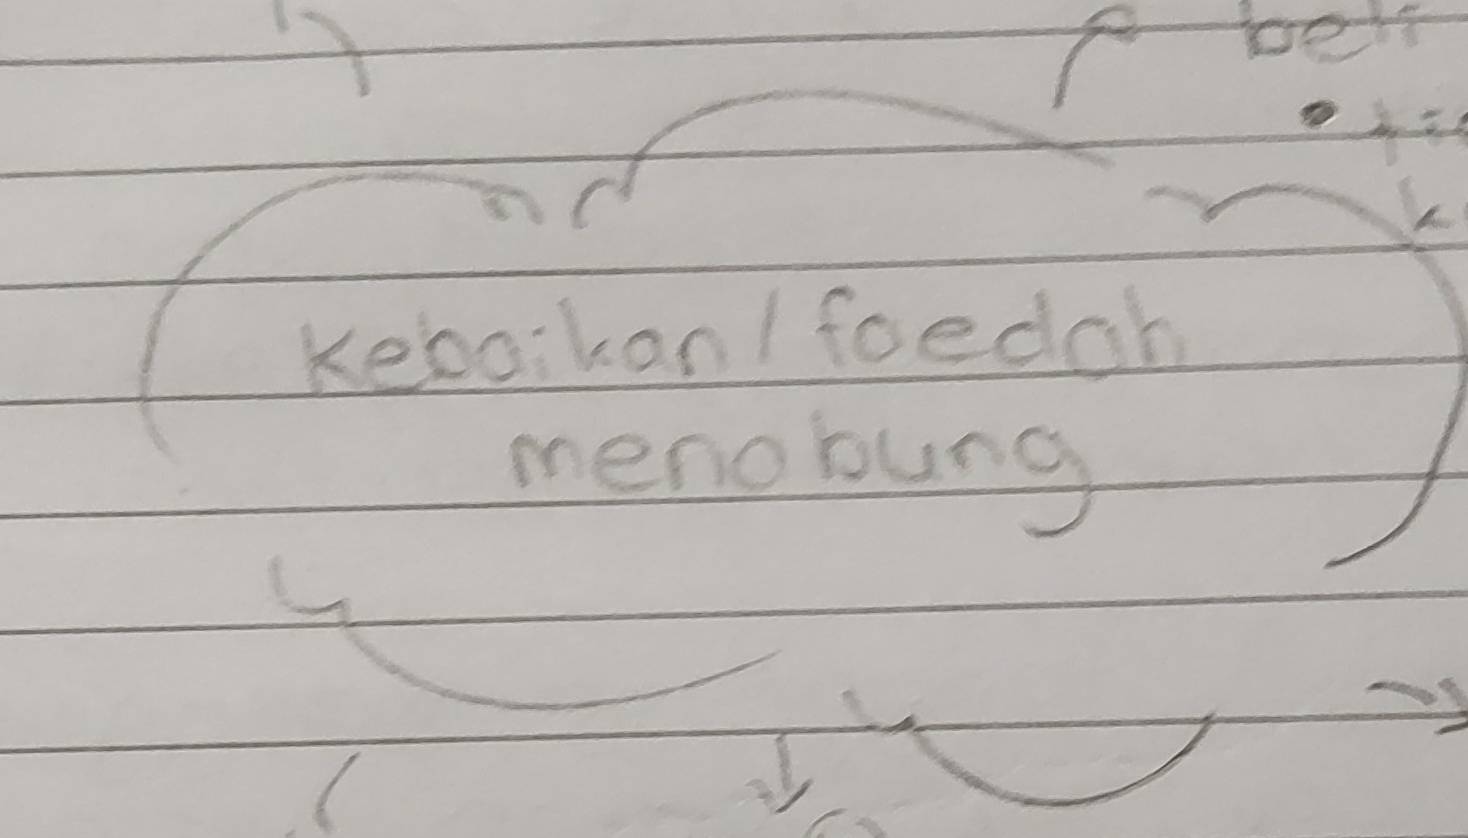 beli
kebaikan / faedah
menabung